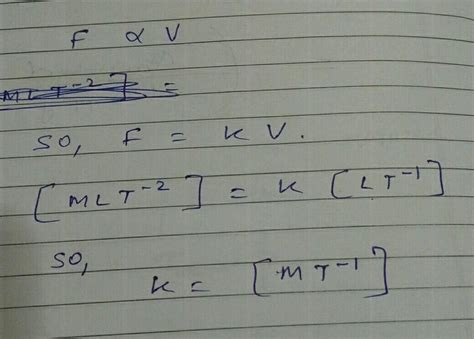 F ∝ V
MLT⁻²] =
SO, F = K V.
[MLT⁻²] = K [LT⁻¹]
SO,
K = [MT⁻¹]